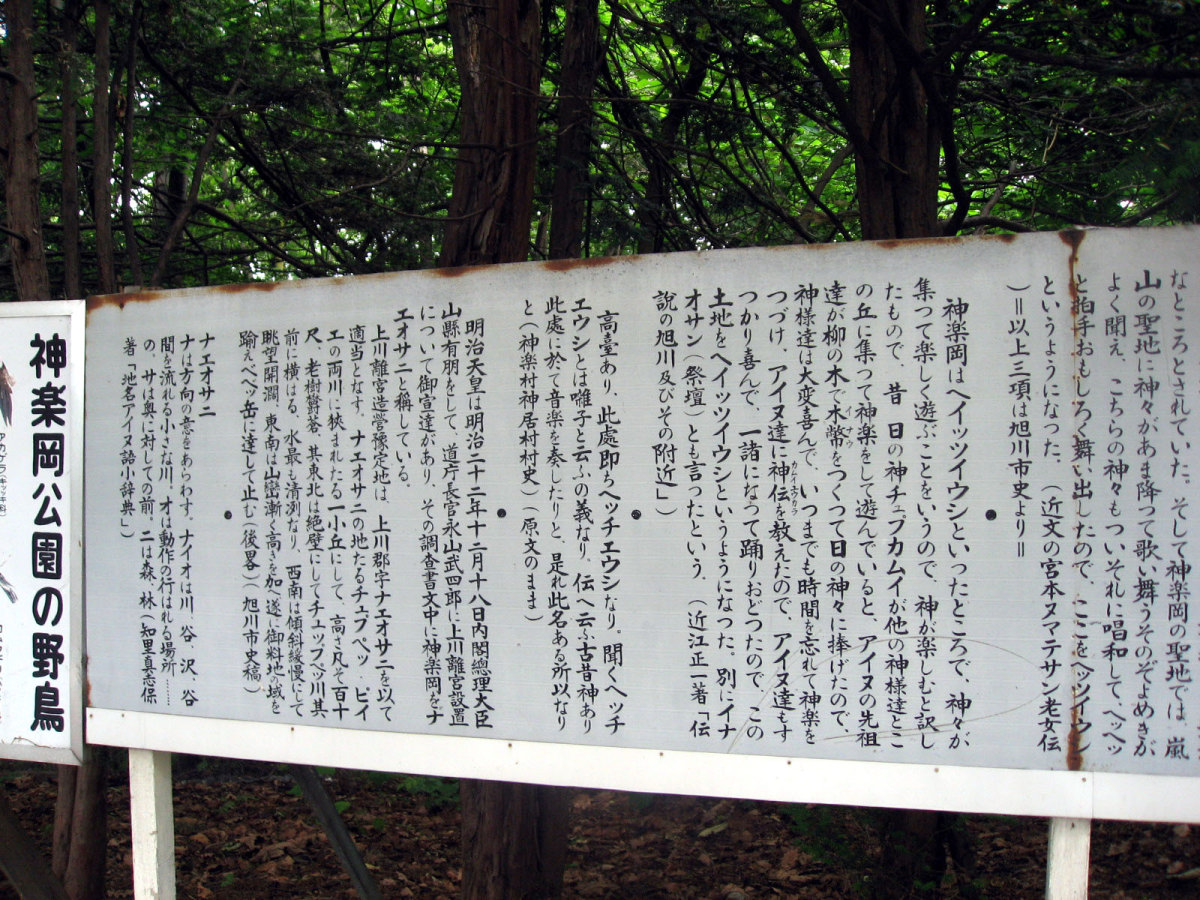 なところとされていた。そして神楽岡の聖地では、嵐
山の聖地に神々があま降って歌い舞うそのぞよめきが
よく聞え、こちらの神々もついそれに唱和して、ヘヘッ
と拍手おもしろく舞い出したので、ここをヘッツイウシ
というようになった。（近文の宮本ヌマテサン老女伝
）＝以上三項は旭川市史より＝
●
神楽岡はヘイッツイウシといったところで、神々が
集って楽しく遊ぶことをいうので、神が楽しむと訳し
たもので、昔 日の神チュプカムイが他の神様達とこ
の丘に集って神楽をして遊んでいると、アイヌの先祖
達が柳の木で木幣をつくって日の神々に捧げたので、
イナウ
神様達は大変喜んで、いつまでも時間を忘れて神楽を
つづけ、アイヌ達に神伝を教えたので、アイヌ達もす
つかり喜んで、一諸になって踊りおどつたので、この
土地をヘイッツイウシというようになった。別にイナ
オサン（祭壇）とも言ったという。（近江正一著「伝
説の旭川及びその附近」）
●
高臺あり、此處即ちヘッチエウシなり。聞くヘッチ
エウシとは囃子と云ふの義なり、伝へ云ふ古昔神あり
此處に於て音楽を奏したりと、是れ此名ある所以なり
と（神楽村神居村村史）（原文のまま）
●
明治天皇は明治二十二年十二月十八日内閣総理大臣
山縣有朋をして、道庁長官永山武四郎に上川離宮設置
について御宣達があり、その調査書文中に神楽岡をナ
エオサニと稱している。
上川離宮造營豫定地は、上川郡字ナエオサニを以て
適当となす。ナエオサニの地たるチュプペッ、ビイ
エの両川に狹まれたる一小丘にして、高さ凡そ百十
尺、老樹欝蒼、其東北は絶壁にしてチュップペッ川其
前に横はる。水最も清冽なり、西南は傾斜緩慢にして
眺望開濶、東南は山巒漸く高さを加へ遂に御料地の域を
踰えベベッ岳に達して止む（後畧）（旭川市史稿）
●
ナエオサニ
ナは方向の意をあらわす。ナイオは川、谷、沢、谷
間を流れる小さな川。オは動作の行はれる場所……
の、サは奥に対しての前。ニは森、林（知里真志保
著「地名アイヌ語小辞典」）
神楽岡公園の野鳥